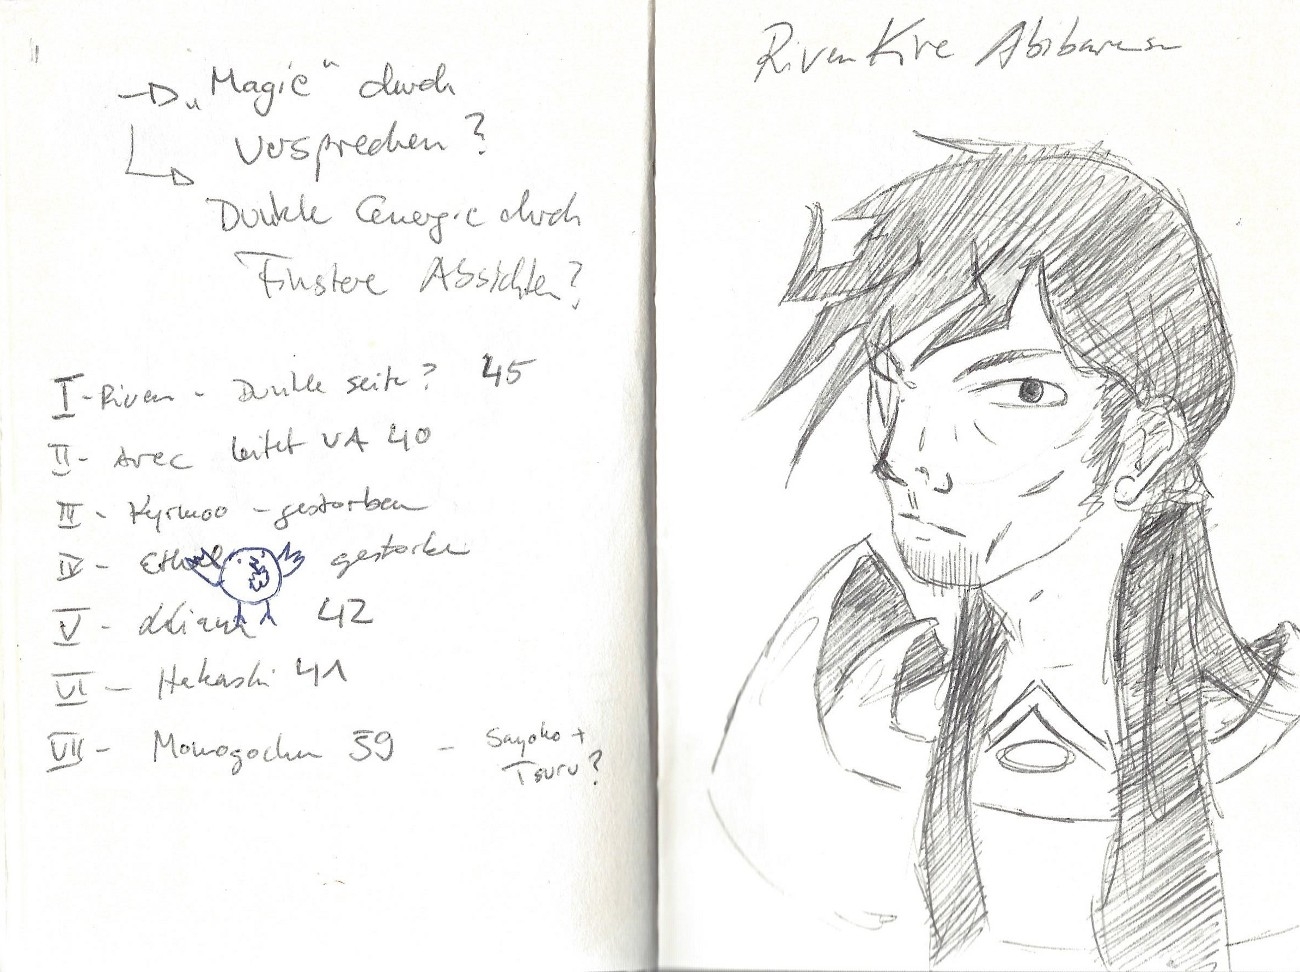 → „Magie“ durch
Versprechen?
→ Dunkle Energie durch
Finstere Absichten?
I - Riven - Dunkle seite? 45
II - Avec leitet VA 40
III - Kyrmoo - gestorben
IV - gestorben
V - 42
VI - Hakashi 41
VII - 39 - Sayoko +
Tsuru?
Riven Kire